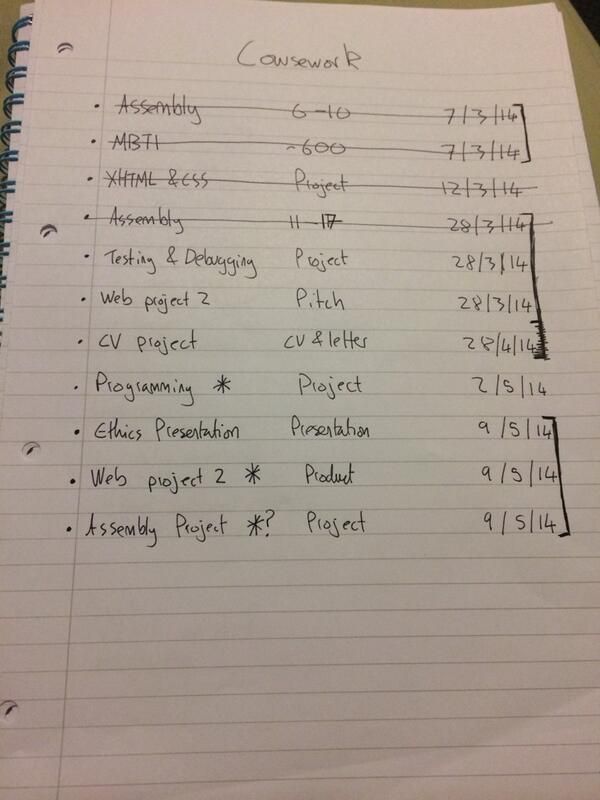 Cousework
• Assembly 6-10 7/3/14
• MBTI ~600 7/3/14
• XHTML & CSS Project 12/3/14
• Assembly 11-17 28/3/14
• Testing & Debugging Project 28/3/14
• Web project 2 Pitch 28/3/14
• CV project CV & letter 28/4/14
• Programming * Project 2/5/14
• Ethics Presentation Presentation 9/5/14
• Web project 2 * Product 9/5/14
• Assembly Project *? Project 9/5/14